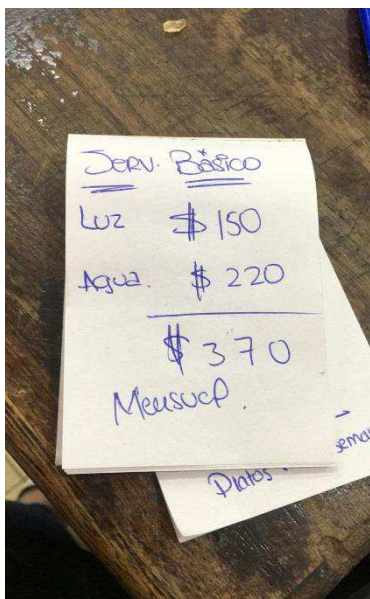 Serv. Básico
Luz $ 150
Agua. $ 220
$ 370
Mensual.
Platos